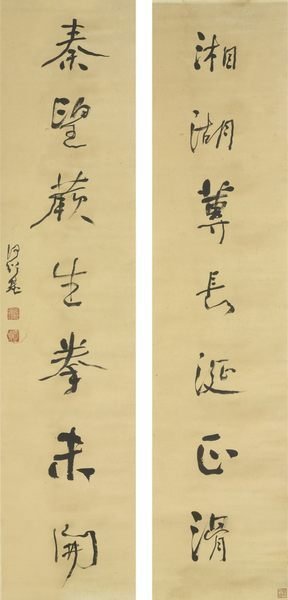 湘湖蓴長涎正滑
秦望蕨生拳未開
何紹基